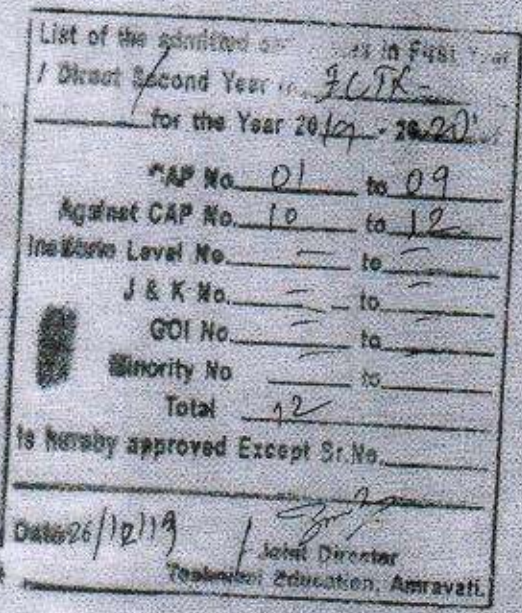 List of the admitted in First Year
/ Direct Second Year in
for the Year 2019 - 2020
CAP No. 01 to 09
Against CAP No. 10 to 12
Institute Level No. — to —
J & K No. — to —
GOI No. — to —
Minority No — to
Total 12
is hereby approved Except Sr.No.
Date 26/12/19
Joint Director
Technical Education, Amravati.